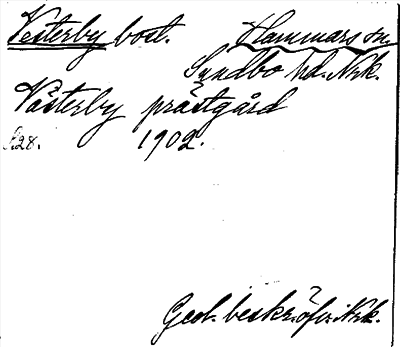 Vesterby bost. Hammars sn.
Sundbo hd. Nrk.
Västerby prästgård
S.28. 1902.
Geol. beskr. öfv. Nrk.